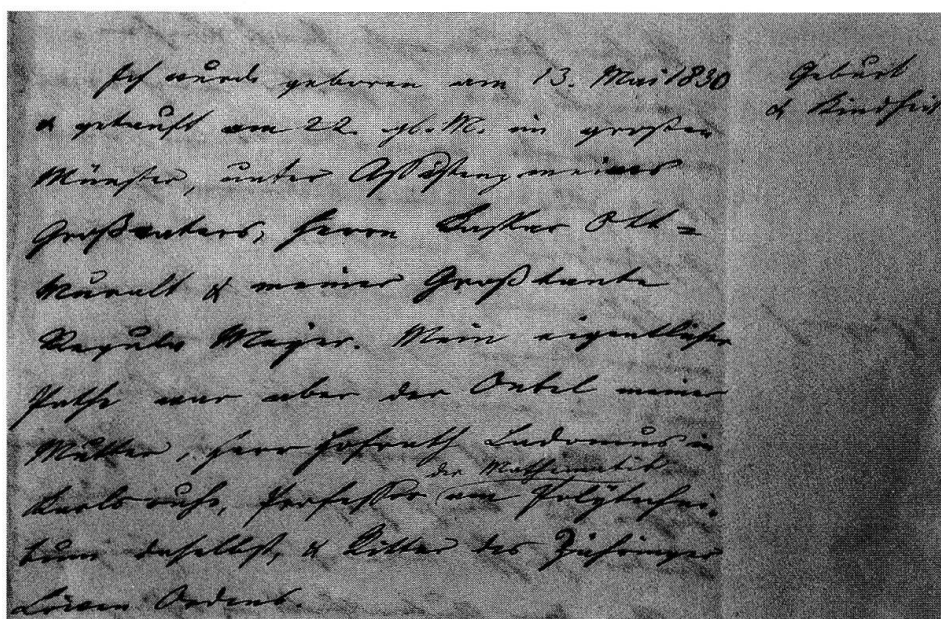 Ich wurde geboren am 13. Mai 1830
& getauft am 22. gl. M. im großen
Münster, unter Assistenz meines
Großvaters, Herrn Caspar Ott=
Muralt & meiner Großtante
Regula Meyer. Mein eigentlicher
Pathe war aber der Onkel meiner
Mutter, Herr Hofrath Ladomus in
der Mathematik
Karlsruhe, Professor am Polytechni-
kum daselbst, & Ritter des Zähringer
Löwen Ordens.
Geburt
& Kindheit